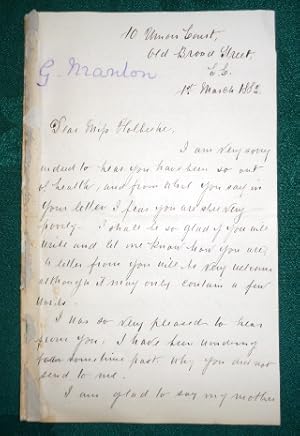 10 Union Court,
Old Broad Street,
E.C.
1st March 1882.
G. Manton
Dear Miss Holbeche,
I am very sorry
indeed to hear you have been so out
of health, and from what you say in
your letter I fear you are still very
poorly. I shall be so glad if you will
write and let me know how you are,
a letter from you will be very welcome
although it may only contain a few
lines.
I was so very pleased to hear
from you. I have been wondering
for some time past why you did not
send to me.
I am glad to say my mother